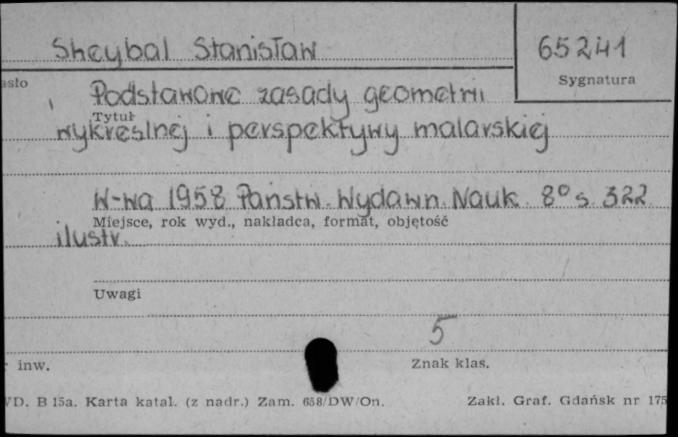 Sheybal Stanisław
65241
asło
Sygnatura
Podstawowe zasady geometrii
Tytuł
wykreślnej i perspektywy malarskiej
W-wa 1958 Państw. Wydawn. Nauk. 8° s. 322
Miejsce, rok wyd., nakładca, format, objętość
ilustr.
Uwagi
5
r inw.
Znak klas.
/D. B 15a. Karta katal. (z nadr.) Zam. 658/DW/On.
Zakł. Graf. Gdańsk nr 175